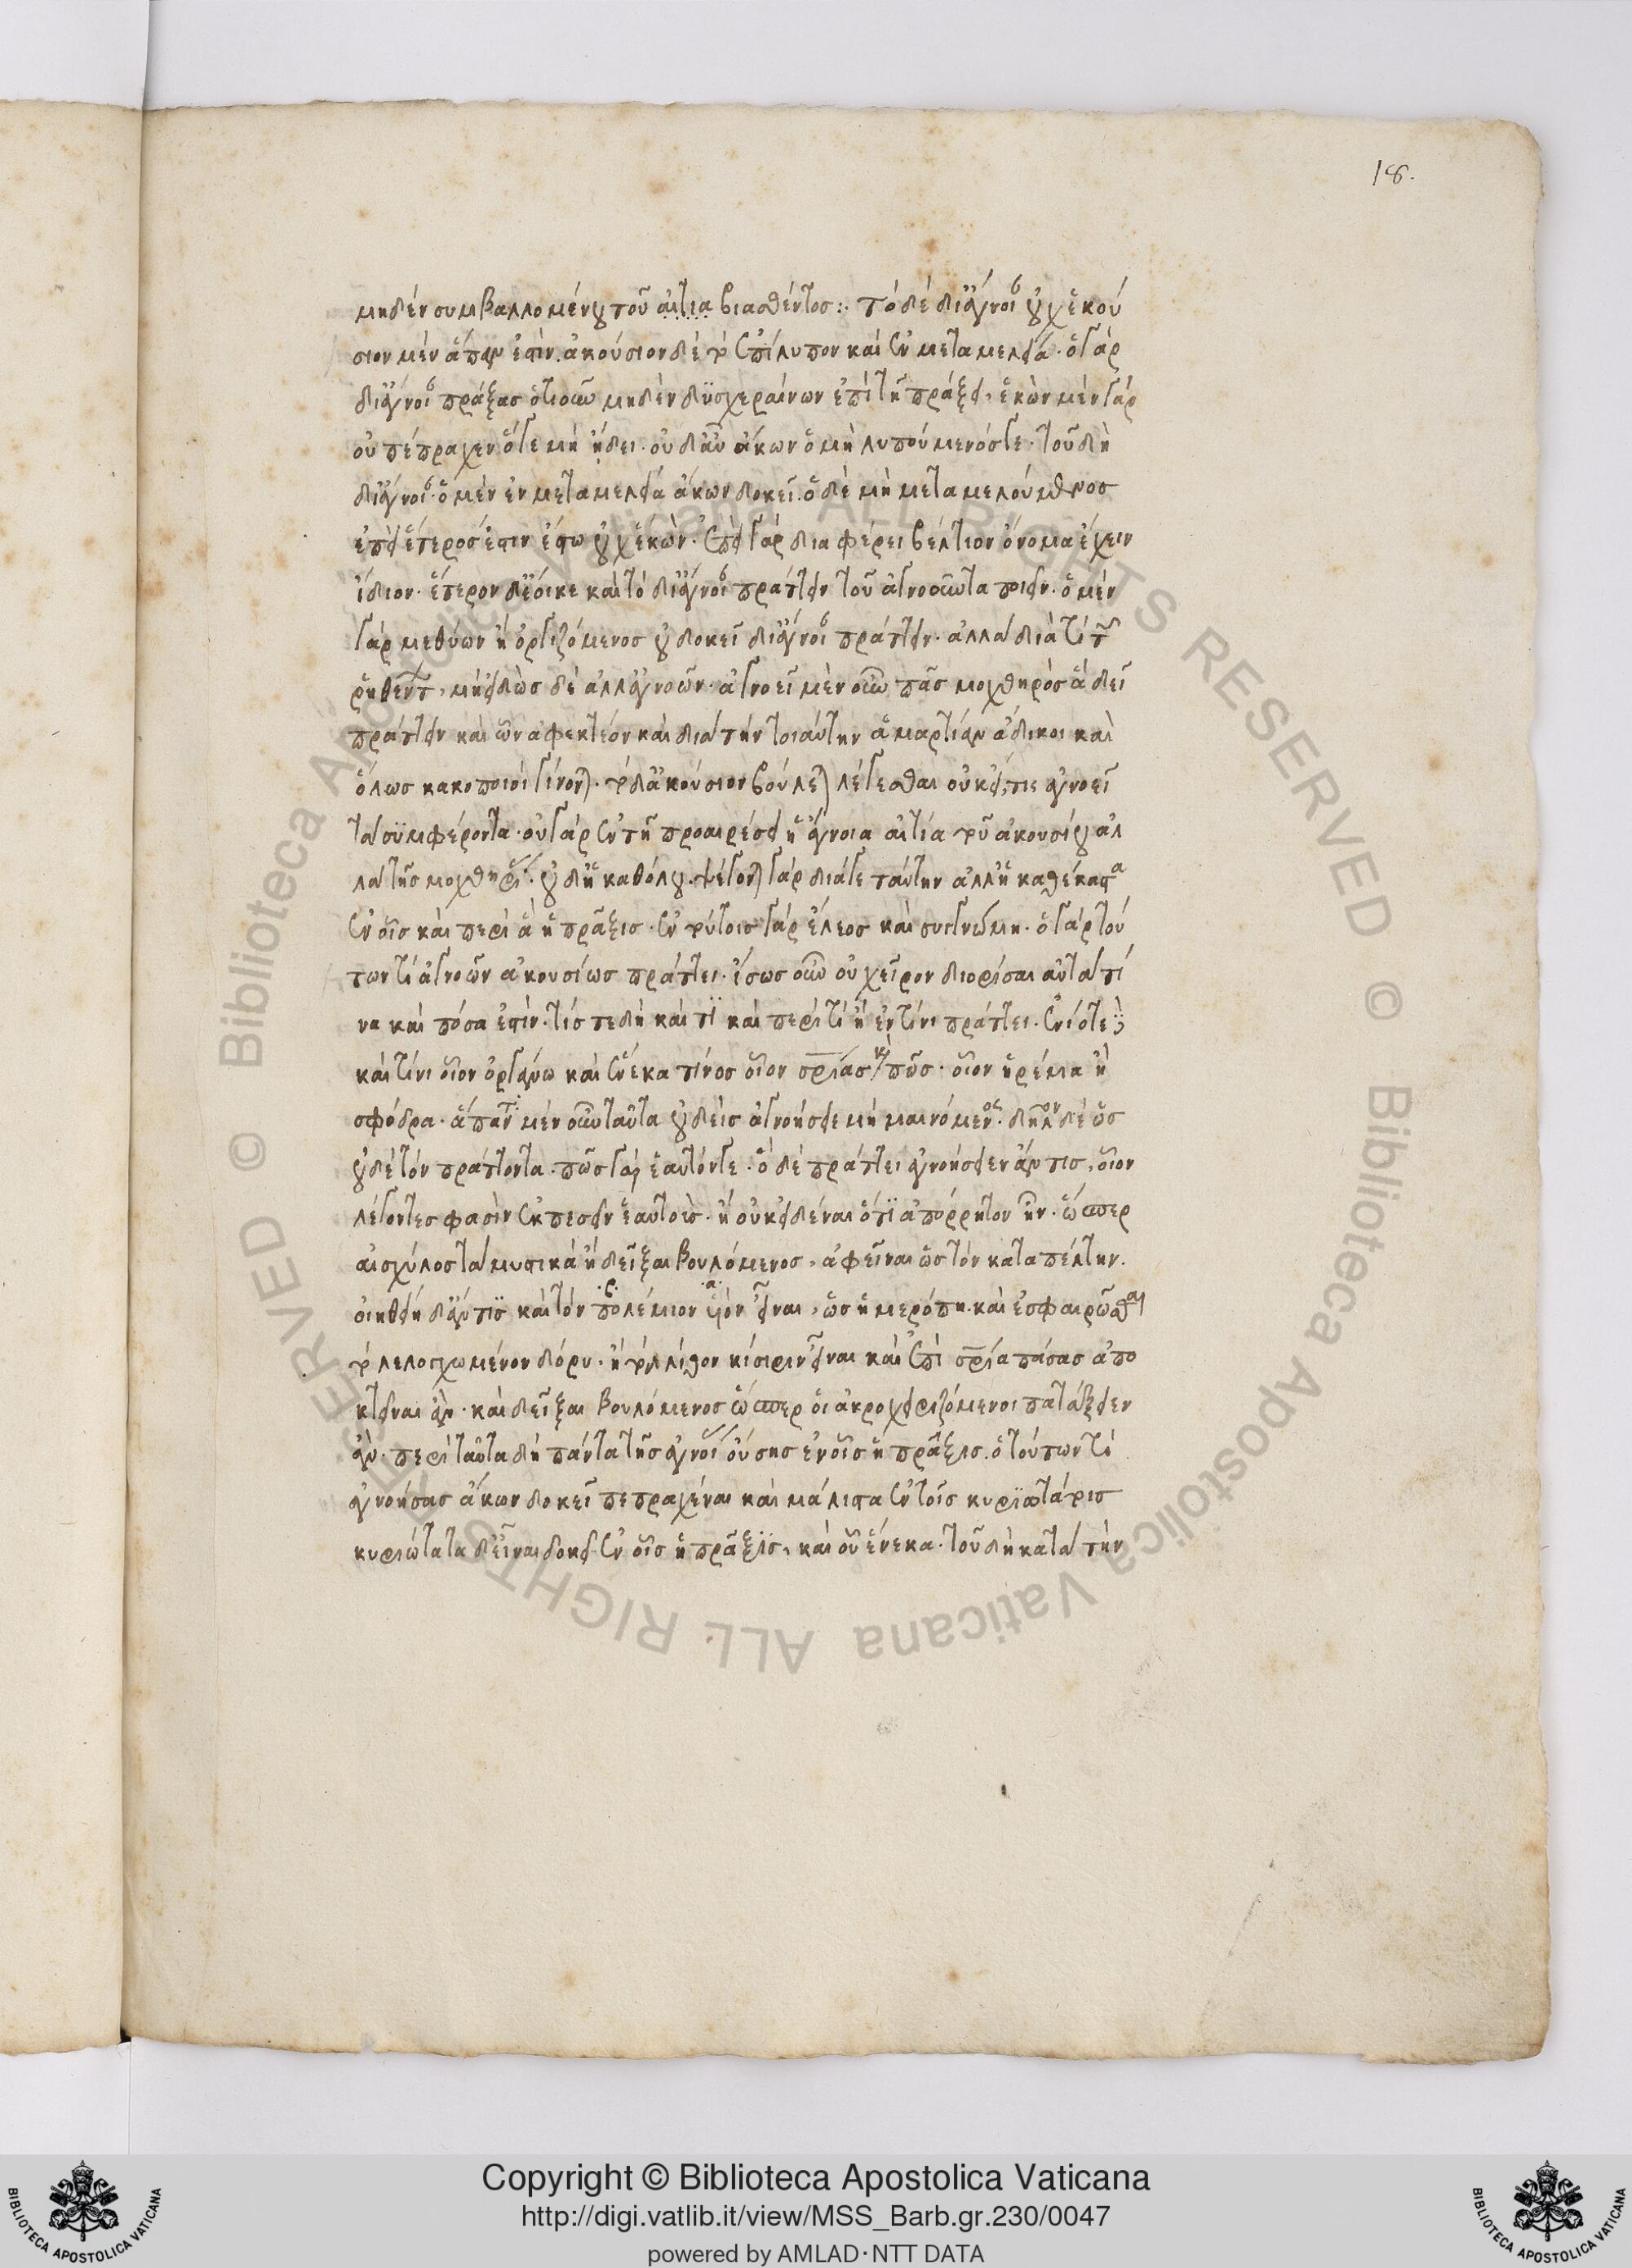 18.
μηδὲν συμβαλλομένου τοῦ αἰτία βιασθέντος :· τὸ δὲ δι' ἄγνοι οὐχ ἑκού
σιον μὲν ἅπαν ἐστὶν. ἀκούσιον δὲ τὸ ἐπίλυπον καὶ ἐν μεταμελεία · ὁ γὰρ
δι' ἄγνοι πράξας ὁτιοῦν μηδὲν δὲ δυσχεραίνων ἐπὶ τῇ πράξει, ἑκὼν μὲν γὰρ
οὐ πέπραχεν ὅ γε μὴ ἤδει · οὐδ' αὖ ἄκων ὁ μὴ λυπούμενός γε · τοῦ δὴ
δι' ἄγνοι · ὁ μὲν ἐν μεταμελεία ἄκων δοκεῖ. ὁ δὲ μὴ μεταμελούμενος
ἐπεὶ ἕτερός ἐστιν ἔστω οὐχ ἑκὼν · ἐπεὶ γὰρ διαφέρει βέλτιον ὄνομα ἔχειν
ἴδιον · ἕτερον δ' ἔοικε καὶ τὸ δι' ἄγνοι πράττειν τοῦ ἀγνοοῦντα ποιεῖν · ὁ μὲν
γὰρ μεθύων ἢ ὀργιζόμενος οὐ δοκεῖ δι' ἄγνοι πράττειν · ἀλλὰ διά τι τῶν
ῥηθέντ, μὴ εἰδὼς δὲ ἀλλ' ἀγνοῶν · ἀγνοεῖ μὲν οὖν πᾶς μοχθηρὸς ἃ δεῖ
πράττειν καὶ ὧν ἀφεκτέον καὶ διὰ τὴν τοιαύτην ἁμαρτίαν ἄδικοι καὶ
ὅλως κακοποιοὶ γίνονται. τὸ δ' ἀκούσιον βούλεται λέγεσθαι οὐκ εἴ τις ἀγνοεῖ
τὰ συμφέροντα · οὐ γὰρ ἐν τῇ προαιρέσει ἡ ἄγνοια αἰτία τοῦ ἀκουσίου ἀλ
λὰ τῆς μοχθηρί · οὐδ' ἡ καθόλου. ψέγονται γὰρ διά γε ταύτην ἀλλ' ἡ καθέκαστα
ἐν οἷς καὶ περὶ ἃ ἡ πρᾶξις · ἐν τούτοις γὰρ ἔλεος καὶ συγγνώμη · ὁ γὰρ τού
των τι ἀγνοῶν ἀκουσίως πράττει · ἴσως οὖν οὐ χεῖρον διορίσαι αὐτὰ τί
να καὶ πόσα ἐστίν · τίς τε δὴ καὶ τί καὶ περὶ τί ἢ ἐν τίνι πράττει · ἐνίοτε δὲ
καὶ τίνι οἷον ὀργάνω καὶ ἕνεκα τίνος οἷον σρίας καὶ πῶς · οἷον ἠρέμα ἢ
σφόδρα · ἅπαντ μὲν οὖν ταῦτα οὐδεὶς ἀγνοήσειε μὴ μαινόμενος · δῆλον δὲ ὡς
οὐδὲ τὸν πράττοντα · πῶς γὰρ ἑαυτόν γε · ὁ δὲ πράττει ἀγνοήσειεν ἄν τις, οἷον
λέγοντες φασὶν ἐκπεσεῖν ἑαυτοὺς · ἢ οὐκ εἰδέναι ὅτι ἀπόρρητον ἦν · ὥσπερ
αἰσχύλος τὰ μυστικὰ ἢ δεῖξαι βουλόμενος, ἀφεῖναι ὡς τὸν καταπέλτην.
οἰηθείη δ' ἄν τις καὶ τὸν πολέμιον υἱὸν εἶναι, ὡς ἡ μερόπη · καὶ ἐσφαιρῶσθαι
τὸ λελογχωμένον δόρυ · ἢ τὸν λίθον κίσιριν εἶναι καὶ ἐπὶ σρία πάσας ἀπο
κτεῖναι ἂν · καὶ δεῖξαι βουλόμενος ὥσπερ οἱ ἀκροχειριζόμενοι πατάξειεν
ἂν · περὶ ταῦτα δὴ πάντα τῆς ἀγνοί οὔσης ἐν οἷς ἡ πρᾶξις. ὁ τούτων τι
ἀγνοήσας ἄκων δοκεῖ πεπραχέναι καὶ μάλιστα ἐν τοῖς κυριωτάτοις
κυριώτατα δ' εἶναι δοκεῖ ἐν οἷς ἡ πρᾶξις, καὶ οὗ ἕνεκα · τοῦ δὴ κατὰ τὴν
Copyright © Biblioteca Apostolica Vaticana
http://digi.vatlib.it/view/MSS_Barb.gr.230/0047
powered by AMLAD·NTT DATA